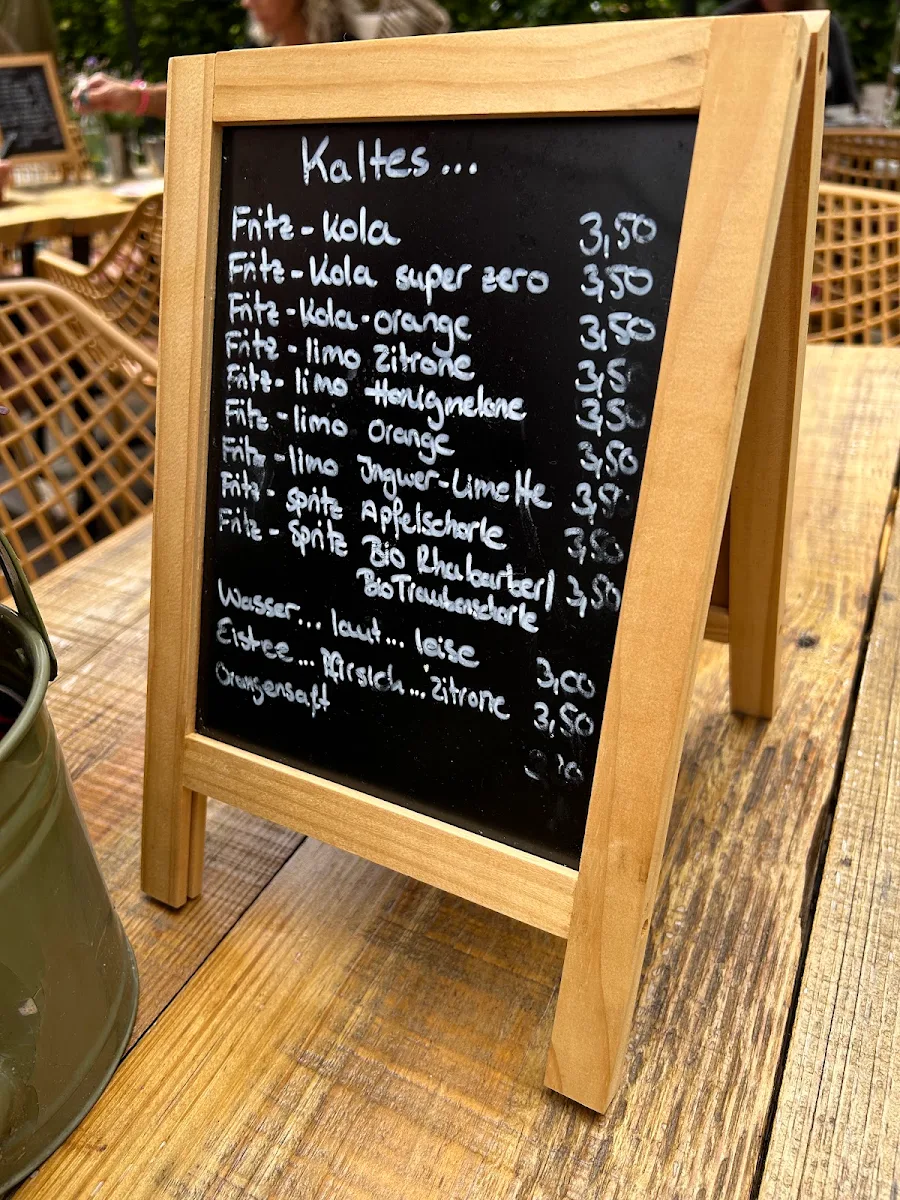 Kaltes...
Fritz-Kola 3,50
Fritz-Kola super zero 3,50
Fritz-Kola-orange 3,50
Fritz-limo Zitrone 3,5
Fritz-limo Honigmelone 3,50
Fritz-limo Orange 3,50
Fritz-limo Ingwer-Limette 3,50
Fritz-spritz Apfelschorle 3,50
Fritz-Spritz Bio Rhabarber/ 3,50
Bio Traubenschorle
Wasser... laut... leise 3,00
Eistee... Pfirsich... Zitrone 3,50
Orangensaft